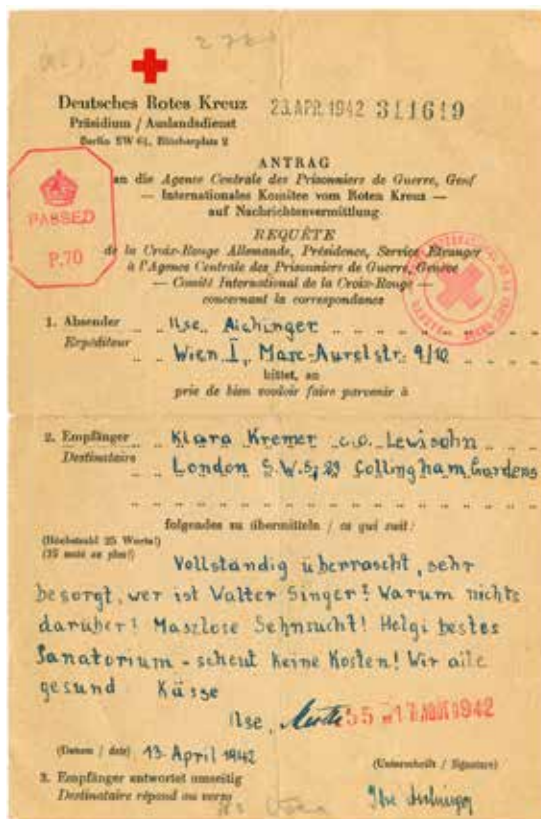 Deutsches Rotes Kreuz
Präsidium / Auslandsdienst
Berlin SW 61, Blücherplatz 2
23. APR. 1942 311619
ANTRAG
an die Agence Centrale des Prisonniers de Guerre, Genf
— Internationales Komitee vom Roten Kreuz —
auf Nachrichtenvermittlung
PASSED
P.70
REQUÊTE
de la Croix-Rouge Allemande, Présidence, Service Étranger
à l'Agence Centrale des Prisonniers de Guerre, Genève
— Comité International de la Croix-Rouge —
concernant la correspondance
1. Absender Ilse Aichinger
Expéditeur Wien I, Marc-Aurelstr. 9/10
bittet, an
prie de bien vouloir faire parvenir à
2. Empfänger Klara Kremer c.o. Lewisohn
Destinataire London S.W.5, 29 Collingham Gardens
folgendes zu übermitteln / ce qui suit:
(Höchstzahl 25 Worte!)
(25 mots au plus!)
Vollständig überrascht, sehr
besorgt, wer ist Walter Singer? Warum nichts
darüber? Maszlose Sehnsucht! Helgi bestes
Sanatorium - scheut keine Kosten! Wir alle
gesund Küsse
Ilse,
17 AOUT 1942
(Datum / date) 13. April 1942
(Unterschrift / Signature)
3. Empfänger antwortet umseitig
Destinataire répond au verso
Ilse Aichinger